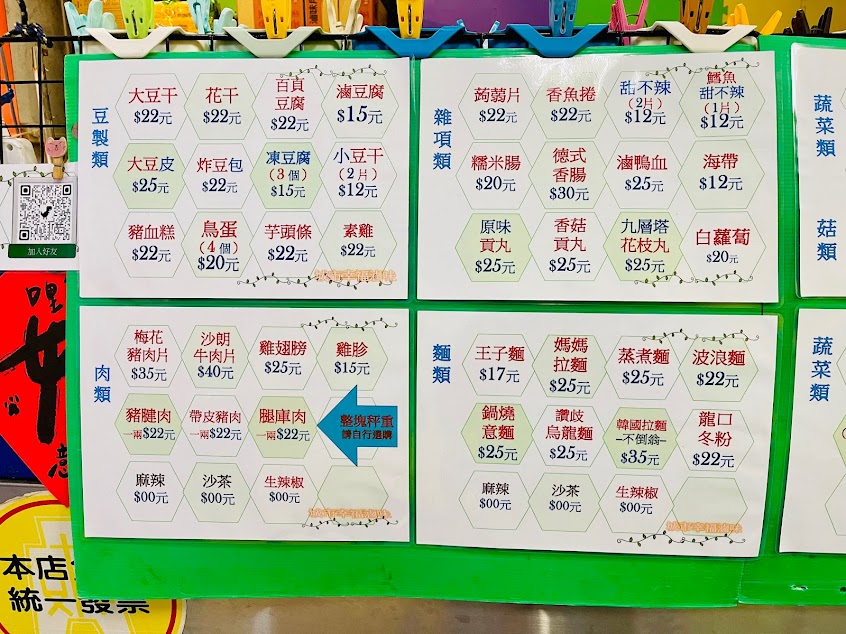 豆製類
大豆干
$22元
花干
$22元
百頁
豆腐
$22元
滷豆腐
$15元
大豆皮
$25元
炸豆包
$22元
凍豆腐
(3個)
$15元
小豆干
(2片)
$12元
豬血糕
$22元
鳥蛋
(4個)
$20元
芋頭條
$22元
素雞
$22元
雜項類
蒟蒻片
$22元
香魚捲
$22元
甜不辣
(2片)
$12元
鱈魚
甜不辣
(1片)
$12元
糯米腸
$20元
德式
香腸
$30元
滷鴨血
$25元
海帶
$12元
原味
貢丸
$25元
香菇
貢丸
$25元
九層塔
花枝丸
$25元
白蘿蔔
$20元
蔬菜類
菇類
加入好友
肉類
梅花
豬肉片
$35元
沙朗
牛肉片
$40元
雞翅膀
$25元
雞胗
$15元
豬腱肉
一兩$22元
帶皮豬肉
一兩$22元
腿庫肉
一兩$22元
整塊秤重
請自行選購
麻辣
$00元
沙茶
$00元
生辣椒
$00元
麵類
王子麵
$17元
媽媽
拉麵
$25元
蒸煮麵
$25元
波浪麵
$22元
鍋燒
意麵
$25元
讚歧
烏龍麵
$25元
韓國拉麵
–不倒翁–
$35元
龍口
冬粉
$22元
麻辣
$00元
沙茶
$00元
生辣椒
$00元
蔬菜類
本店
統一發票